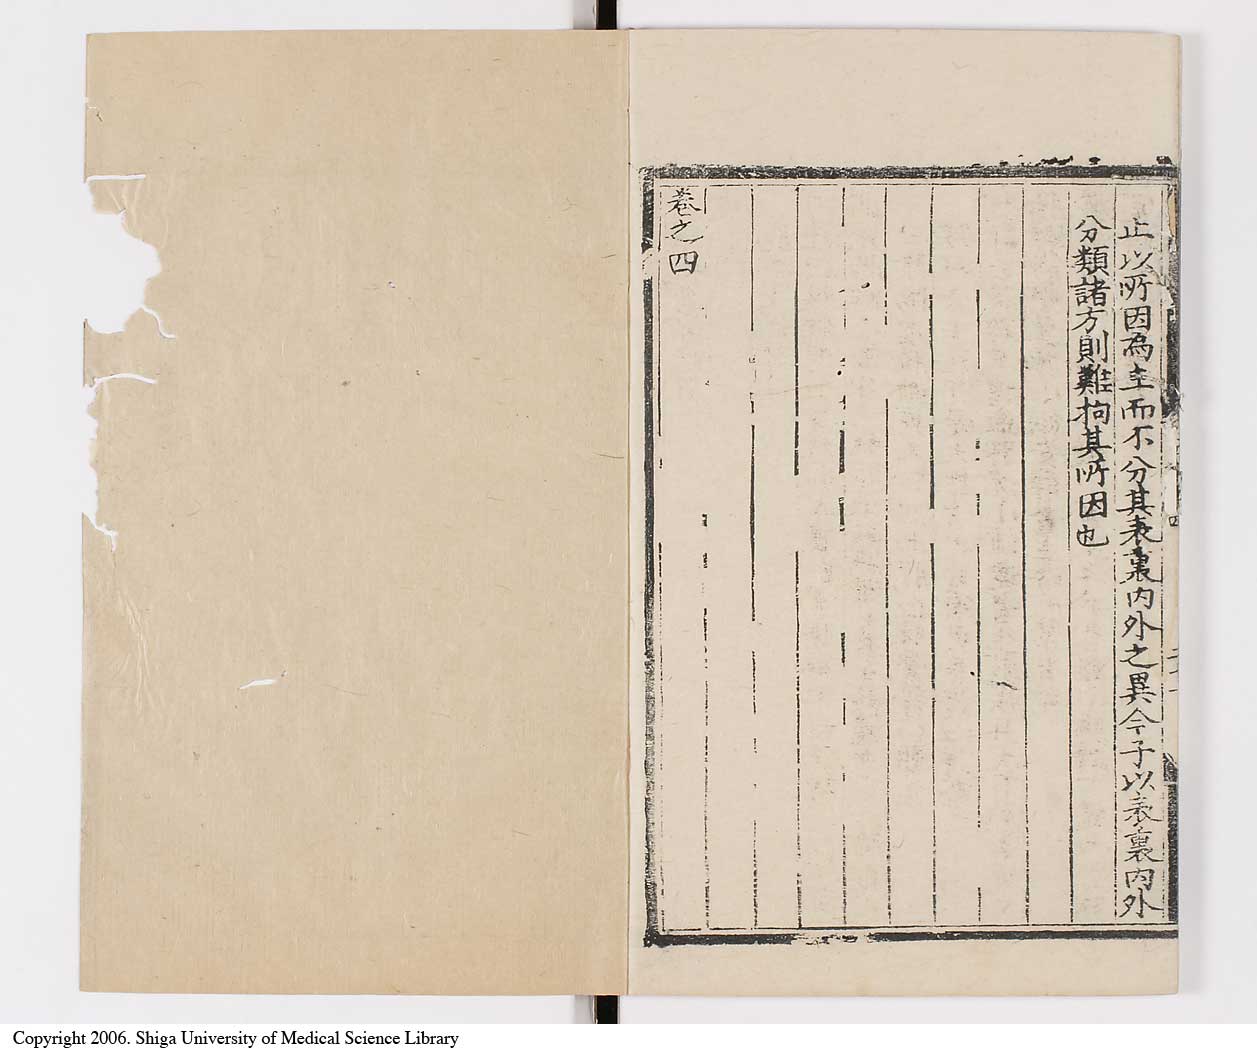 止以所因為主而不分其表裏内外之異今子以表裏内外
分類諸方則難拘其所因也
卷之四
Copyright 2006. Shiga University of Medical Science Library